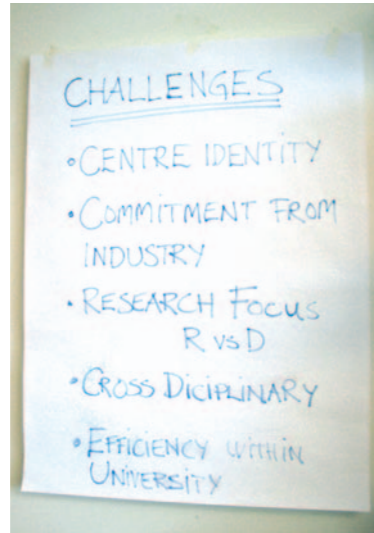 CHALLENGES
• CENTRE IDENTITY
• COMMITMENT FROM
INDUSTRY
• RESEARCH FOCUS
R vs D
• CROSS DICIPLINARY
• EFFICIENCY WITHIN
UNIVERSITY